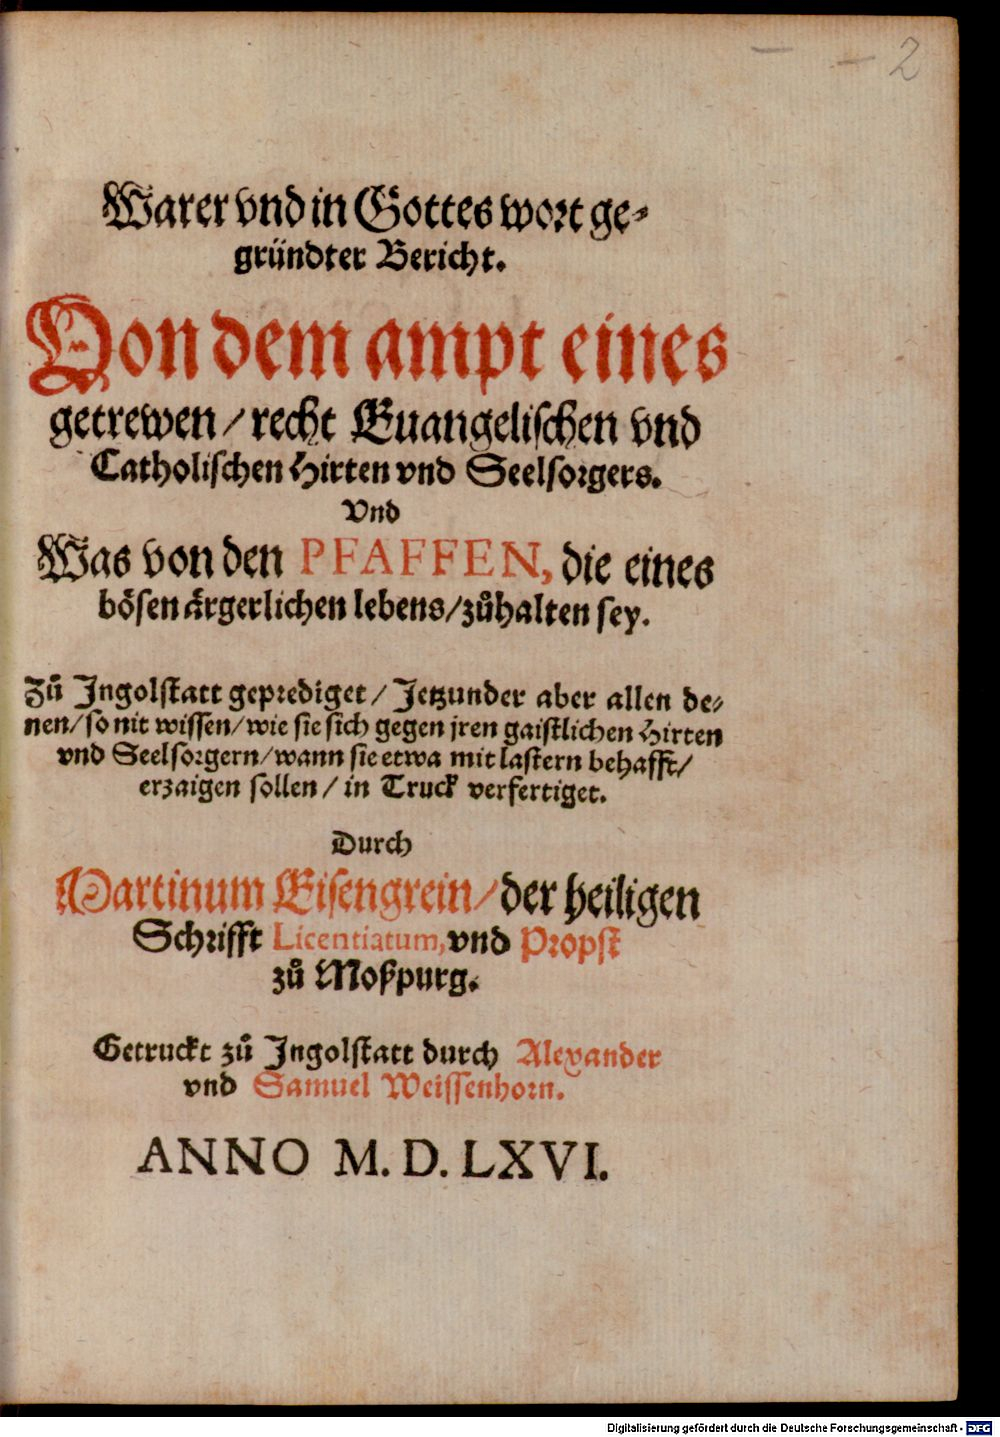 2
Warer vnd in Gottes wort ge-
gründter Bericht.
Von dem ampt eines
getrewen / recht Euangelischen vnd
Catholischen Hirten vnd Seelsorgers.
Vnd
Was von den PFAFFEN, die eines
bösen ärgerlichen lebens / zůhalten sey.
Zů Ingolstatt geprediget / Jetzunder aber allen de-
nen / so nit wissen / wie sie sich gegen jren gaistlichen Hirten
vnd Seelsorgern / wann sie etwa mit lastern behafft /
erzaigen sollen / in Truck verfertiget.
Durch
Martinum Eisengrein / der heiligen
Schrifft Licentiatum, vnd Propst
zů Moßpurg.
Getruckt zů Ingolstatt durch Alexander
vnd Samuel Weissenhorn.
ANNO M. D. LXVI.
Digitalisierung gefördert durch die Deutsche Forschungsgemeinschaft - DFG